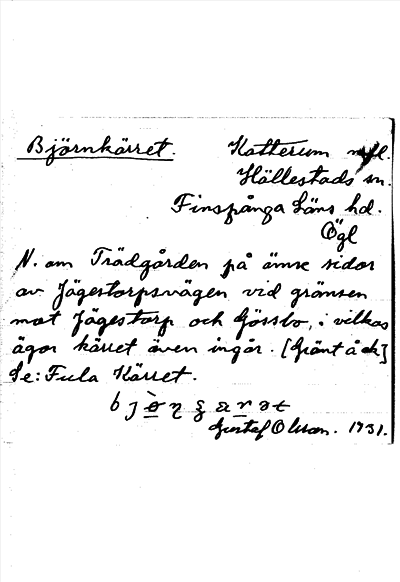 Björnkärret. Katterum
Hällestads sn.
Finspånga läns hd.
Ögl
N. om Trädgården på ömse sidor
av Jägestorpsvägen vid gränsen
mot Jägestorp och Gössbo, i vilkas
ägor kärret även ingår.
Se: Fula Kärret.
Gustaf Olsson. 1931.